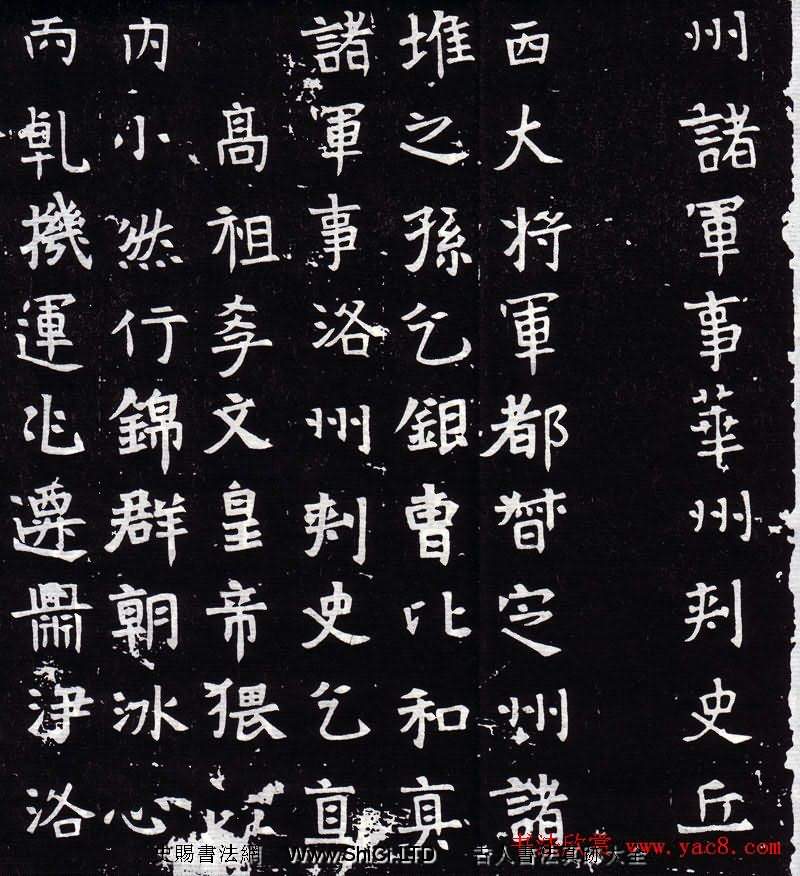 州諸軍事華州刾史丘
西大将軍都督定州諸
堆之孫乞銀曹比和真
諸軍事洛州刾史乞直
高祖孝文皇帝猥
内小然行錦群朝冰心
丙乹機運兆遷鼎洢洛
书法欣赏 www.yac8.com
史賜書法網 WWW.ShiCi.LTD 古人書法真跡大全